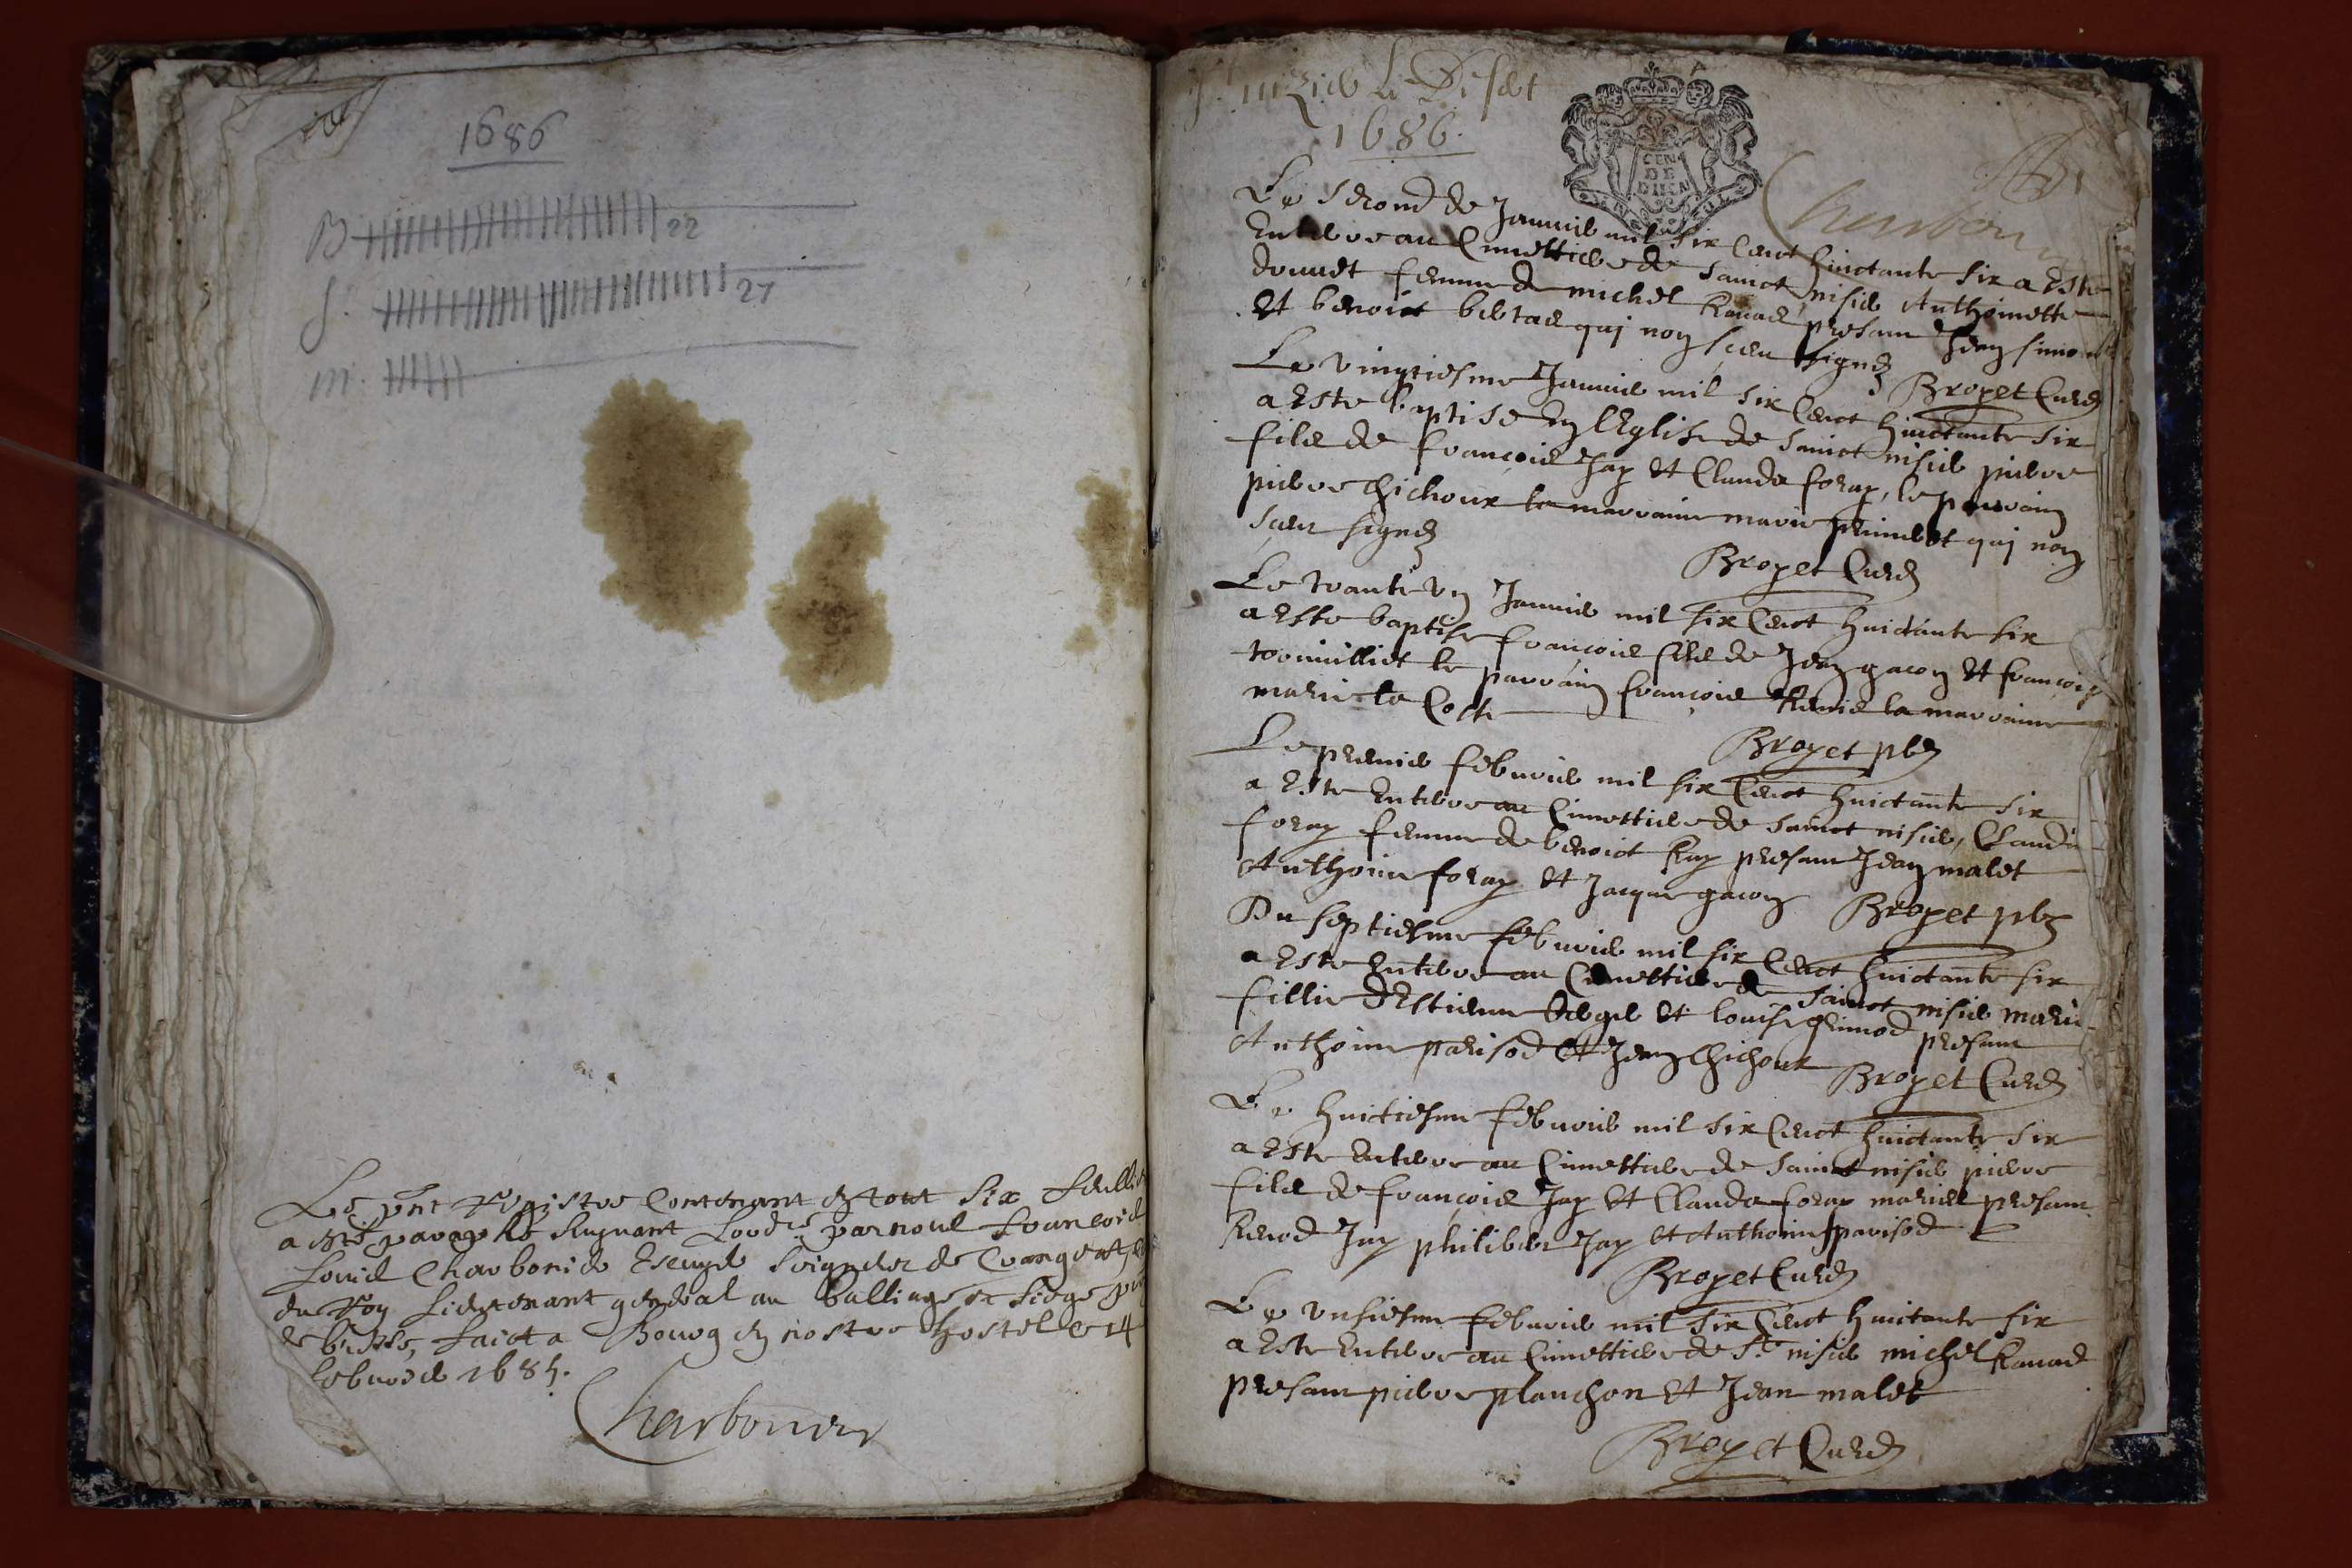 1686
B 22
S. 27
m.
Le pnt Registre Contenant en tout six feullie
a esté paraphé suyuant Lord.ce par nous francois
Louis Charbonier Escuyer seigneur de Crangeat
du Roy Lieutenant general au balliage et siege
de bresse, faict a Bourg en nostre hostel le 14
febvrier 1685.
Charbonier
St nizier Le Disert
1686.
CEN
DE
DIJON
Charbon
Le second de Januier mil six Cent huictante six a Este
Enterre au Cimettiere de sainct nisier Anthoinette
douuet femme de michel Rauas presant Jean simon
Et benoict bertas qui non sceu signer
Broyet Curé
Le vingtiesme Januier mil six Cent huictante six
a Este baptise en lEglise de sainct nisier pierre
fils de francois Jay Et Clauda foray, le parrain
pierre Chichoux la marraine marie preuuelt qui non
sceu signer
Broyet Curé
Le trante vn Januier mil six Cent huictante six
a Este baptise francois fils de Jean gacon Et francoise
trouilliet le parrain francois la marraine
marie la Coste
Broyet pbre
Le premier febvrier mil six Cent huictante six
a Este Enterre au Cimettiere de sainct nisier, Clauda
foray femme de benoict Ray presant Jean malet
Anthoine foray Et Jacque gacon
Broyet pbre
Du septiesme febvrier mil six Cent huictante six
a Este Enterre au Cimettiere de sainct nisier marie
fillie dEstienne Et louise grimod presant
Anthoine parisod Et Jean Chichoux
Broyet Curé
Le huitiesme febvrier mil six Cent huictante six
a Este Enterre au Cimettiere de sainct nisier pierre
fils de francois Jay Et Clauda foray mariés presant
Jay philibert Jay Et Anthoine parisod
Broyet Curé
Le vnsiesme febvrier mil six Cent huictante six
a Este Enterre au Cimettiere de St nisier michel Rauas
presant pierre planchon Et Jean malet
Broyet Curé